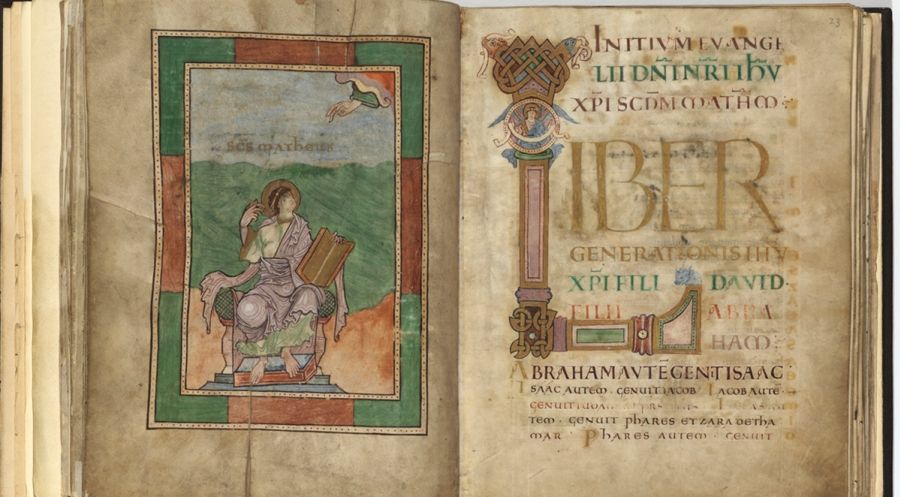 SCS MATHEUS
23
INITIVM EVANGE
LII DN̄I N̄RI IHV
XP̄I SCDM MATHM:
LIBER
GENERATIONIS IHV
XP̄I FILI DAVID·
FILII ABRA
HAM:
ABRAHAM AVTĒ GENT ISAAC·
ISAAC AUTEM· GENUIT IACOB IACOB AUTĒ·
GENUIT
TEM· GENUIT PHARES ET ZARA DE THA
MAR· PHARES AUTEM· GENUIT